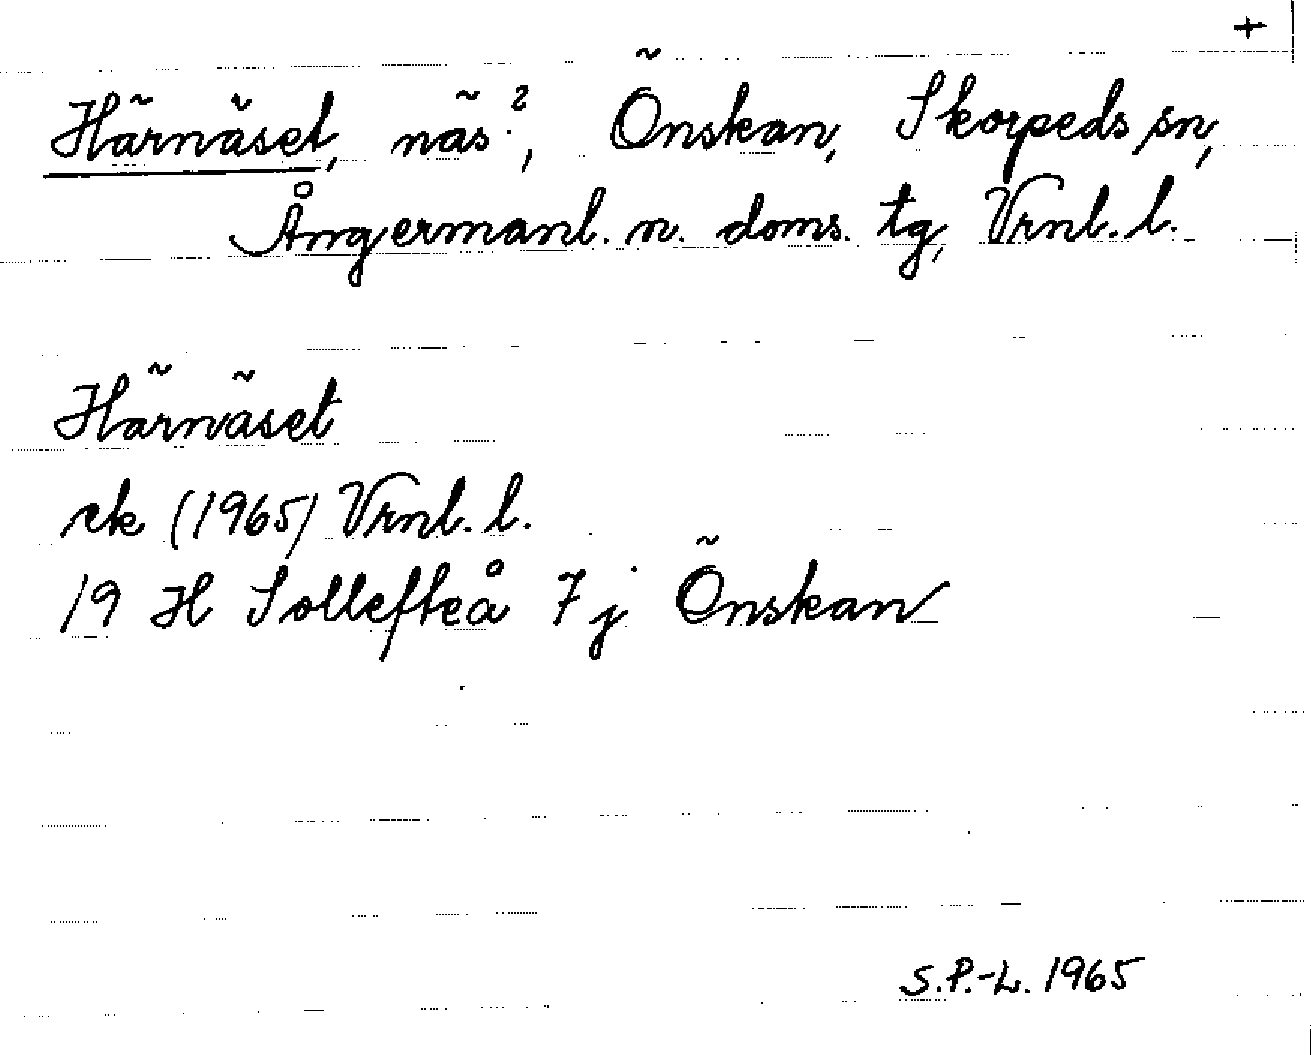 +
Härnäset, näs?, Önskan, Skorpeds sn,
Ångermanl. n. doms. tg, Vrnl. l.
Härnäset
ek (1965) Vrnl. l.
19 H Sollefteå 7j Önskan
S.P.-L. 1965